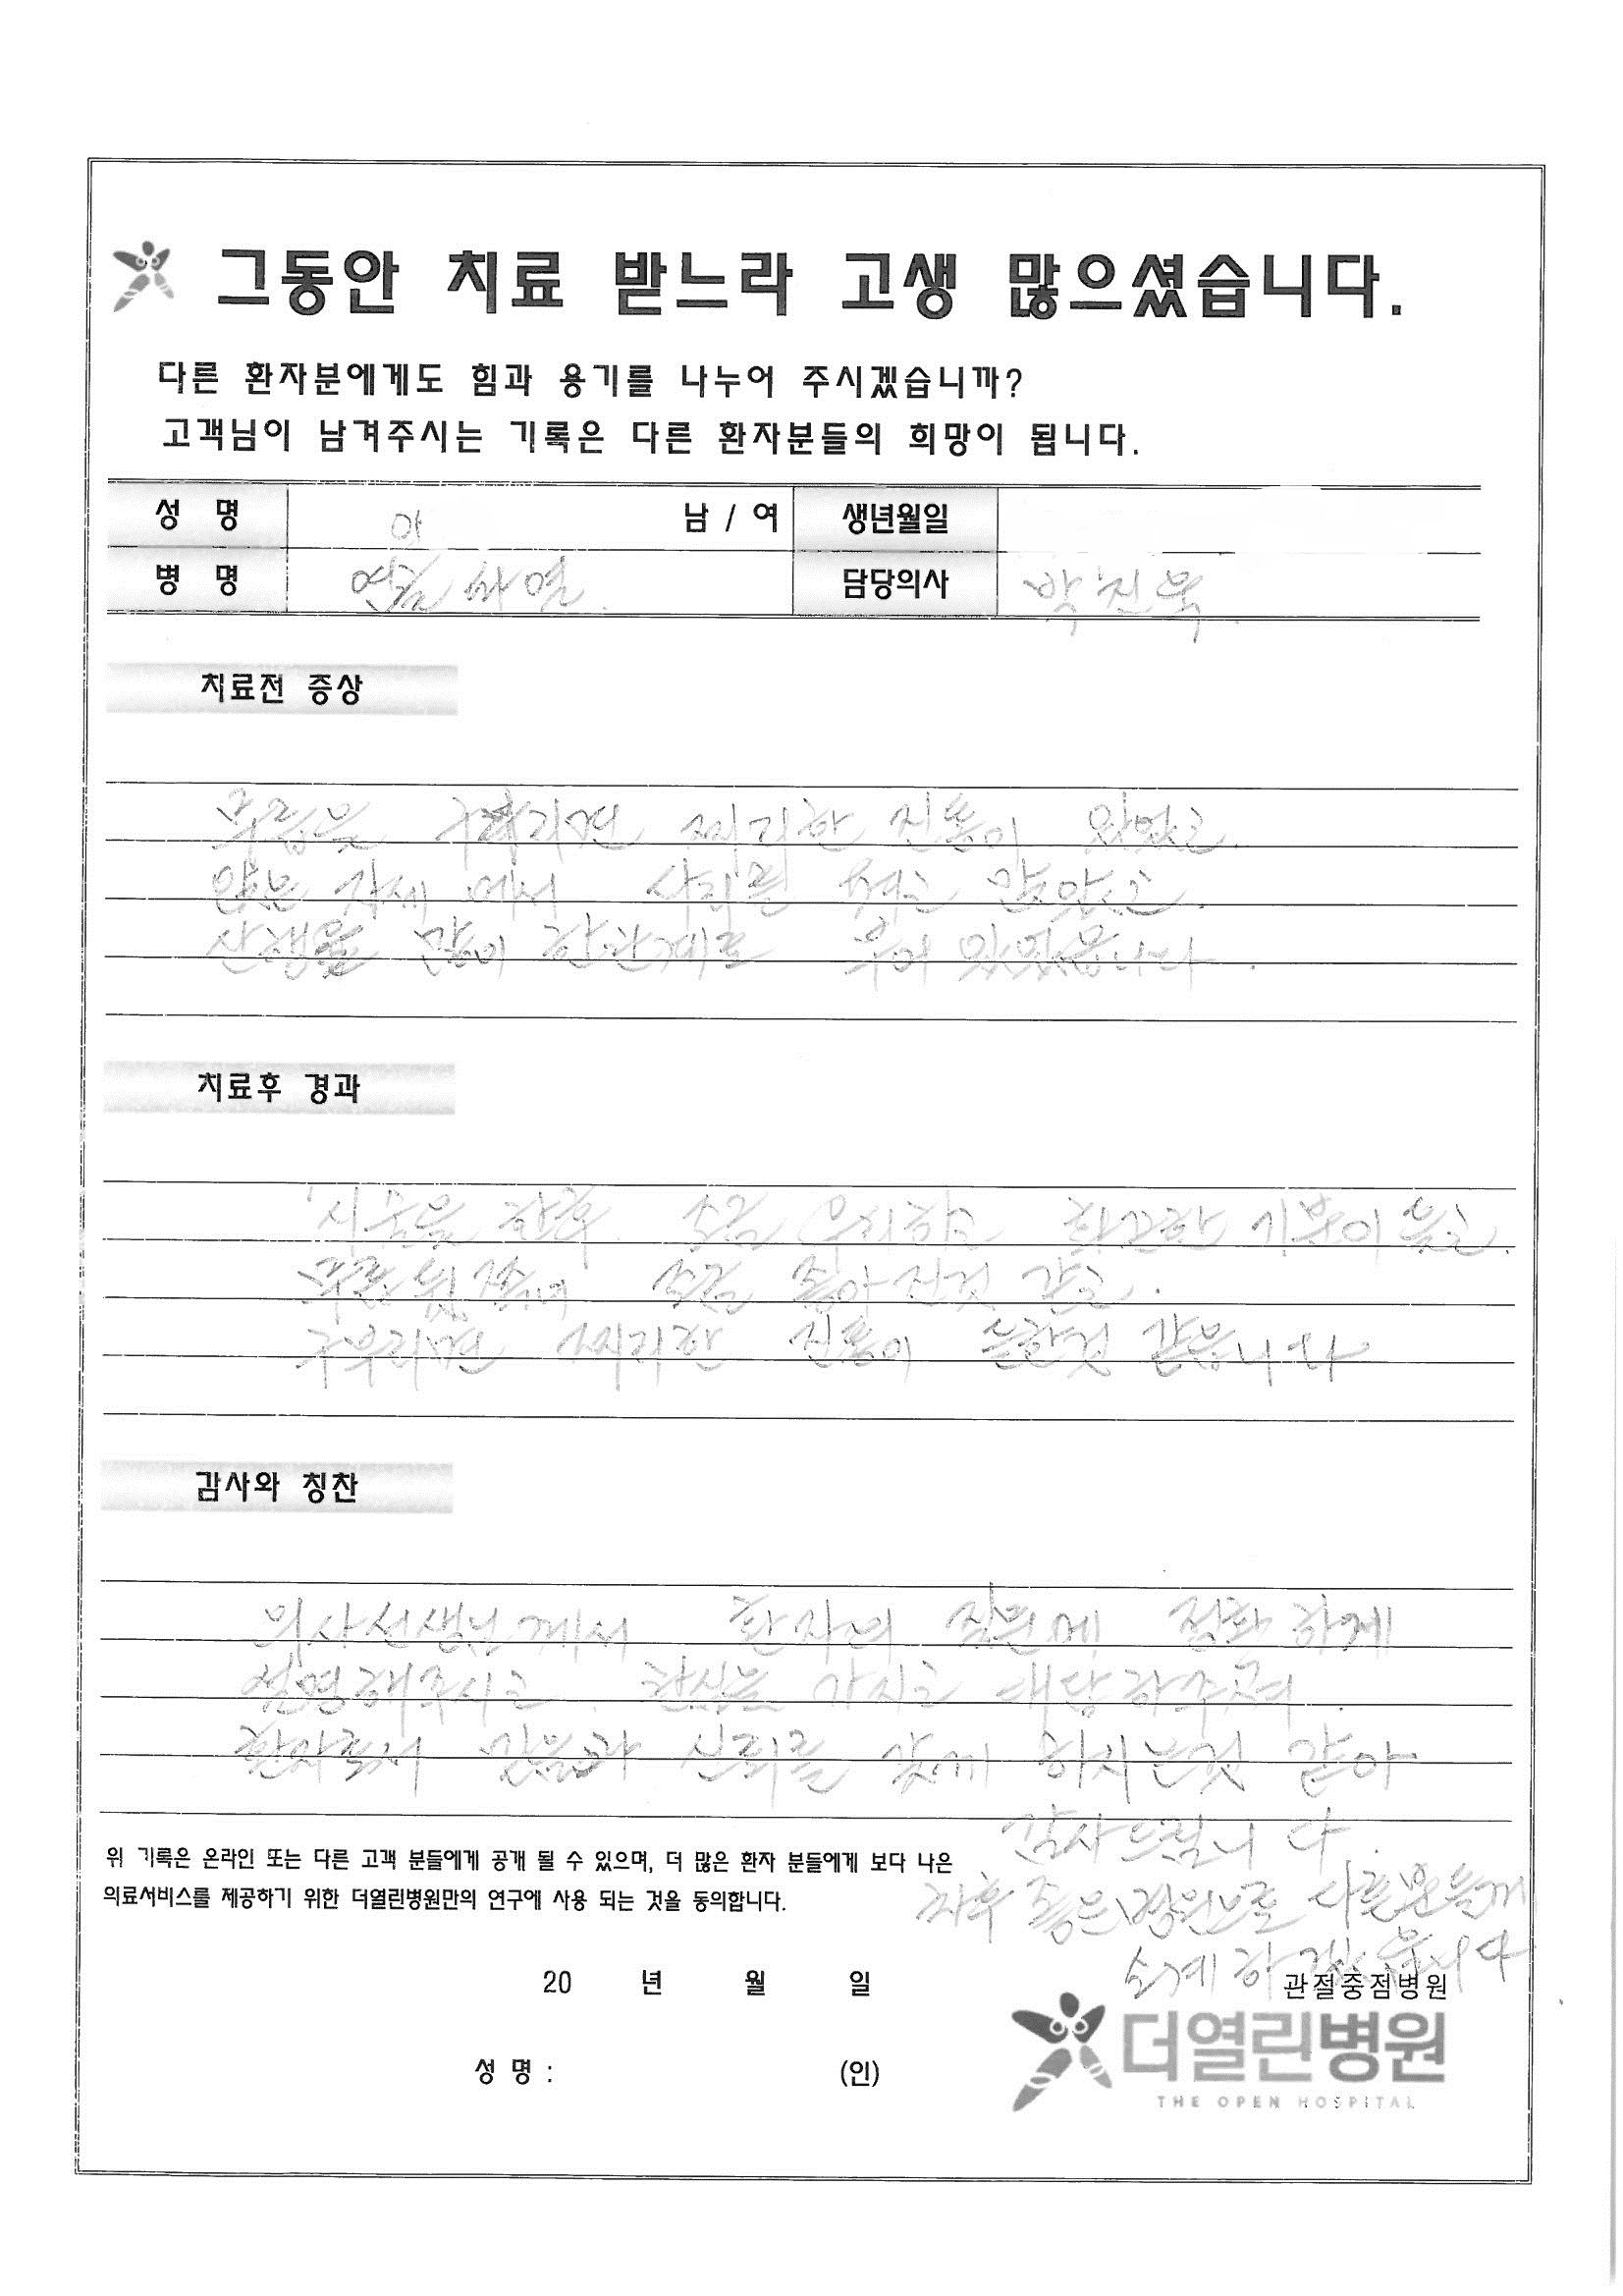 그동안 치료 받느라 고생 많으셨습니다.
다른 환자분에게도 힘과 용기를 나누어 주시겠습니까?
고객님이 남겨주시는 기록은 다른 환자분들의 희망이 됩니다.
성 명 남 / 여 생년월일
병 명 파열 담당의사 박진욱
치료전 증상
무릎을 구부리면 찌리한 진통이 있었고
앉은 자세에서 다리를
산행을 많이 한관계로 부어 있었습니다
치료후 경과
시술을 한후 조금 우리하고 화끈한 기분이 들고
무릎 뒷쪽에 조금 좋아진것 같고
구부리면 찌리한 진통이 덜한것 같습니다
감사와 칭찬
의사선생님께서 환자의 질문에 정확하게
설명해주시고 관심을 가지고 대답하주고
환자로서 믿음과 신뢰를 갖께 하시는것 같아
감사드립니다.
위 기록은 온라인 또는 다른 고객 분들에게 공개 될 수 있으며, 더 많은 환자 분들에게 보다 나은
의료서비스를 제공하기 위한 더열린병원만의 연구에 사용 되는 것을 동의합니다.
차후 좋은병원으로 다른분들께
소개하겠습니다
20 년 월 일
관절중점병원
더열린병원
THE OPEN HOSPITAL
성 명 : (인)